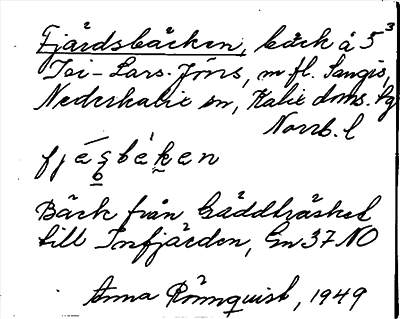 Fjärdsbäcken, bäck å 5³
Isi-Lars-Jöns, m fl. Sangis,
Nederkalix sn, Kalix doms. tg
Norrb. l
fjésbéken
Bäck från Gäddträsket
till Infjärden, Gn 37 NO
Anna Rönnquist, 1949